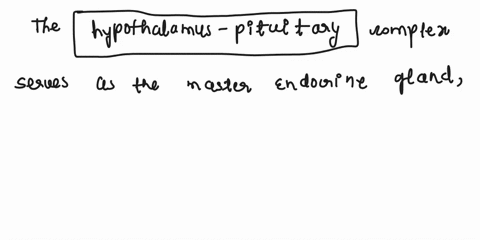 The hypothalamus - pituitary complex
serves as the master endocrine gland,